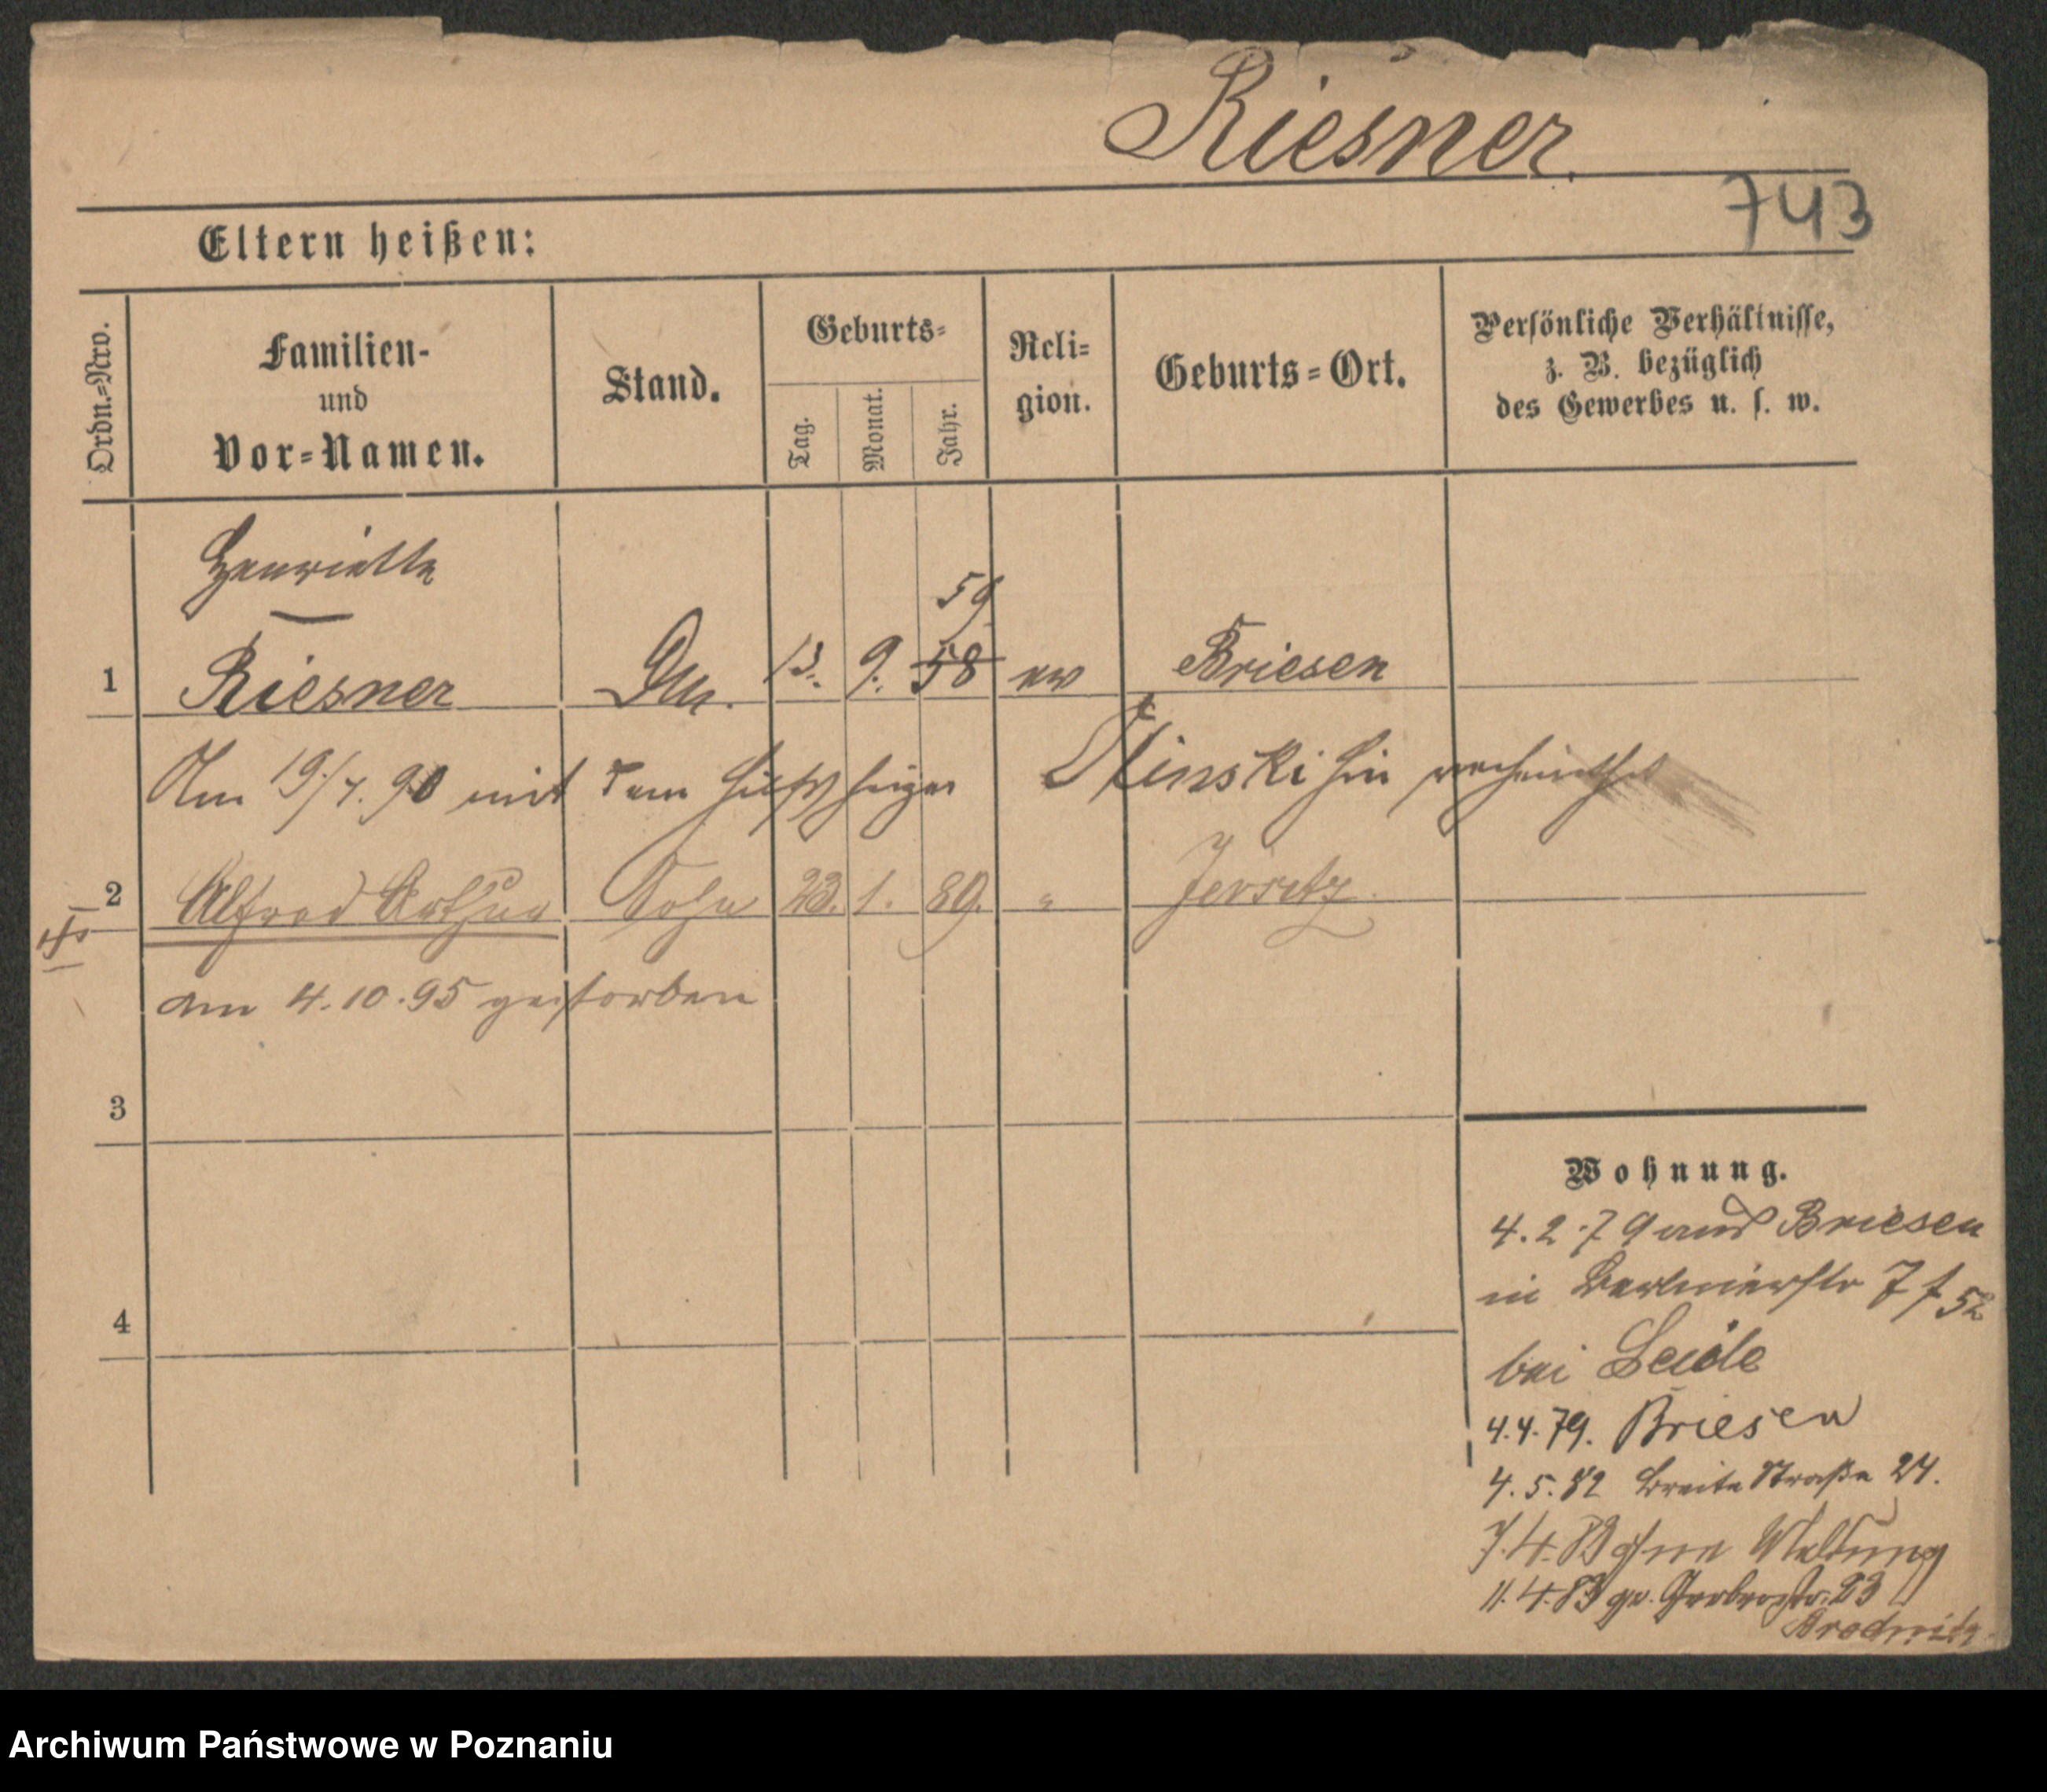 Riesner.
743
Eltern heißen:
Ordn.=Nro.
Familien-
und
Vor=Namen.
Stand.
Geburts=
Tag.
Monat.
Jahr.
Reli=
gion.
Geburts=Ort.
Persönliche Verhältnisse,
z. B. bezüglich
des Gewerbes u. s. w.
Henriette
59
1 Riesner 13. 9. 58 ev Briesen
Am 19/7. 90 mit dem hier verheirathet
2 Alfred Arthur Sohn 23. 1. 89. " Jersitz
am 4.10.95 gestorben
3
4
Wohnung.
4.2.79 aus Briesen
in Berlinerstr
bei
4.4.79. Briesen
4.5.82 Breite Straße 24.
7.4.83 ohne Meldung
11.4.83 Gerberstr. 23